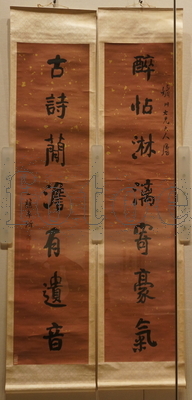 醉帖淋漓寄豪氣
古詩蕑澹有遺音